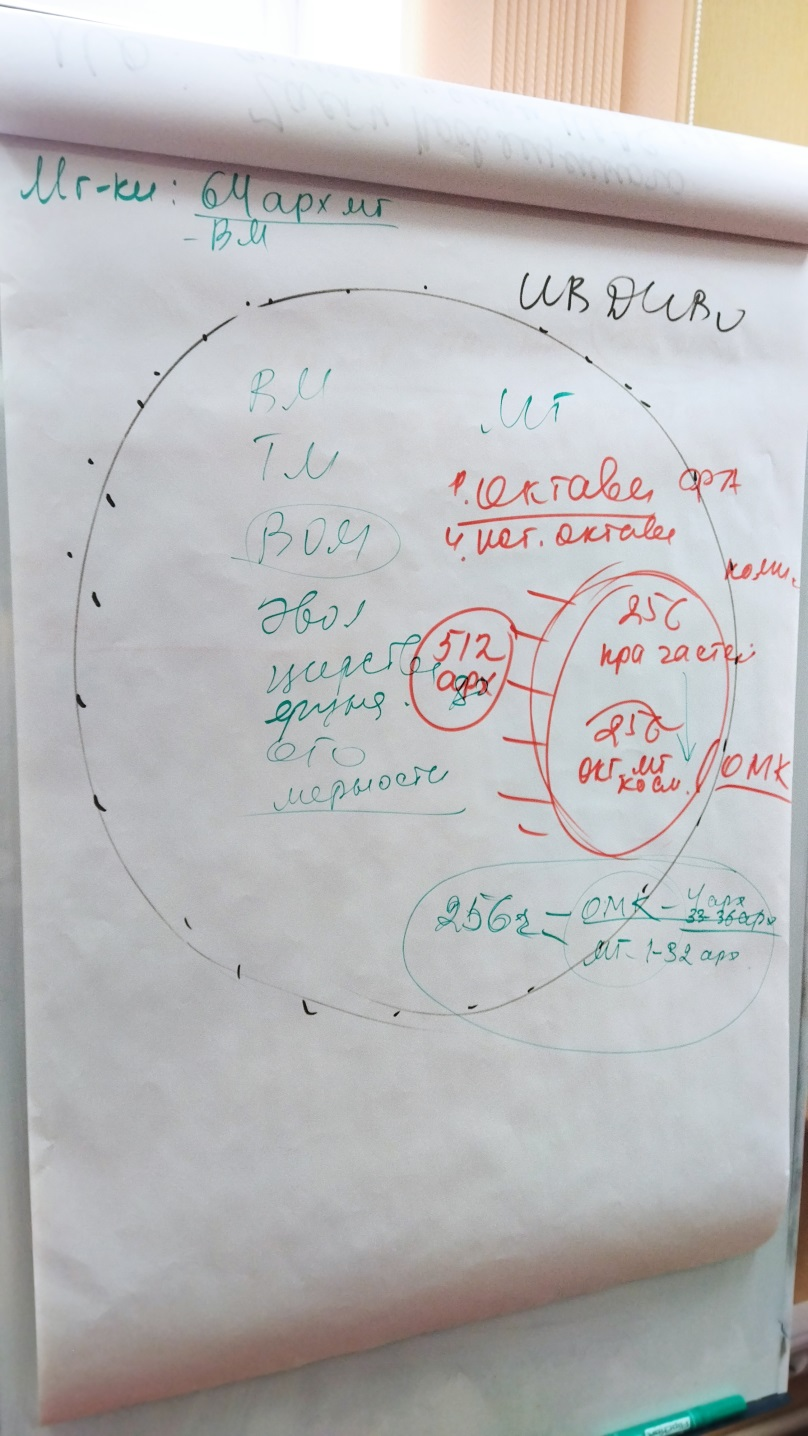 Мг-ки: 64 арх мг
- ВМ
ИВДИВО
ВМ
ТМ
ВОМ
Эвол
царств
ОГО
мерности
Мг
1. Октавы ФА
4. ист. октавы
512
арх
256
пра частей
256
окт. мг
косм.
ОМК
256г =
ОМК - 4 арх
33-36 арх
Мг - 1-32 арх